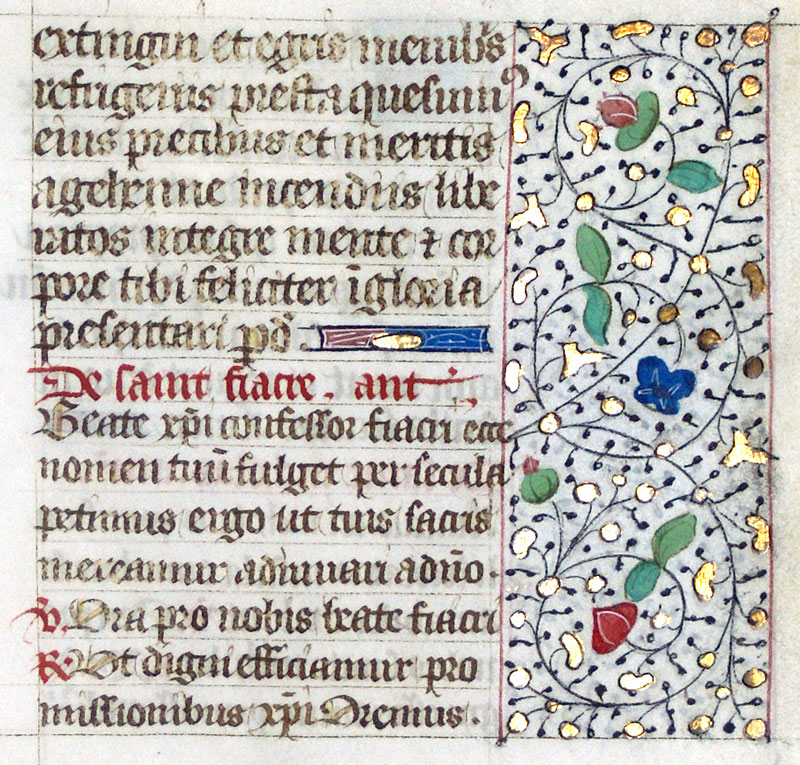 extingui et egris membris
refrigeriis presta quesumꝰ
eius precibus et meritis
agehenne incendiis libe
ratos integre mente ⁊ cor
pore tibi feliciter ī gloria
presentari p dō̄.
De saint fiacre. ant
Beate xp̄i confessor fiacri ecce
nomen tuū fulget per secula
petimus ergo ut tuis sacris
mereamur adiuuari ad dn̄o.
V. Ora pro nobis beate fiacri
R. Ut digni efficiamur pro
missionibus xp̄i Oremus.